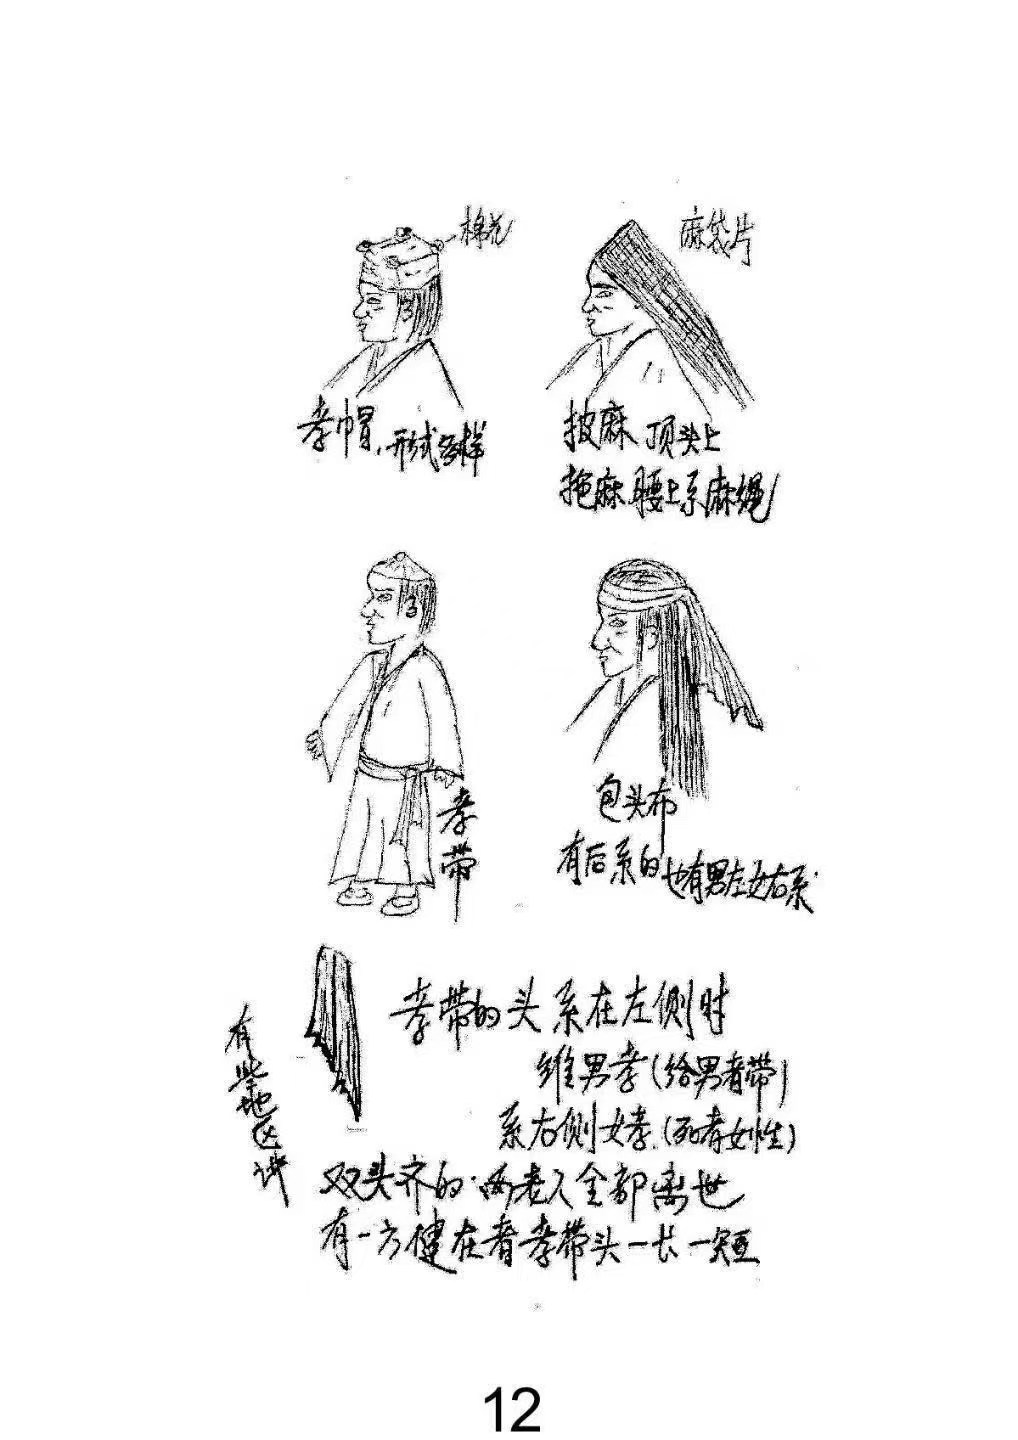 棉花
麻袋片
孝巾冒,形式多样
披麻 顶头上
拖麻 腰上系麻绳
孝带
包头布
有后系的
也有男左女右系
孝带的头系在左侧时
男孝(给男者带)
系右侧女孝.(死者女性)
有些地区讲
双头齐的·两老人全部离世
有一方健在者孝带头一长一短
12